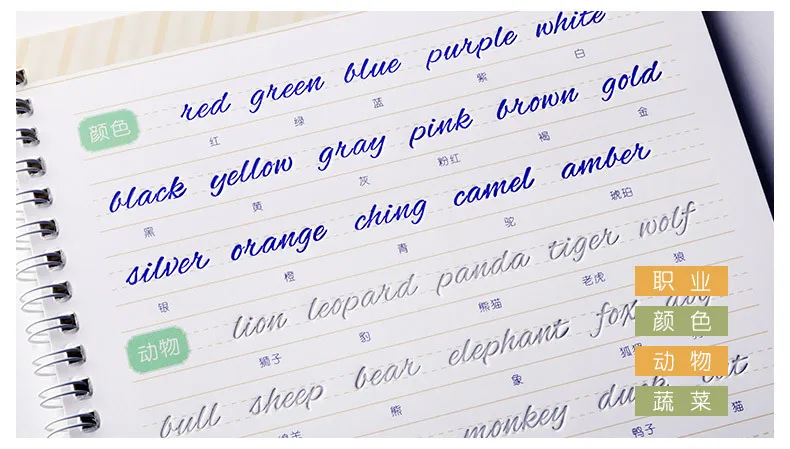 red green blue purple white
颜色 红 绿 蓝 紫 白
black yellow gray pink brown gold
黑 黄 灰 粉红 褐 金
silver orange ching camel amber
银 橙 青 驼 琥珀
lion leopard panda tiger wolf
动物 狮子 豹 熊猫 老虎 狼
bull sheep bear elephant fox dog
熊 象
monkey duck cat
鸭子 猫
职业
颜色
动物
蔬菜